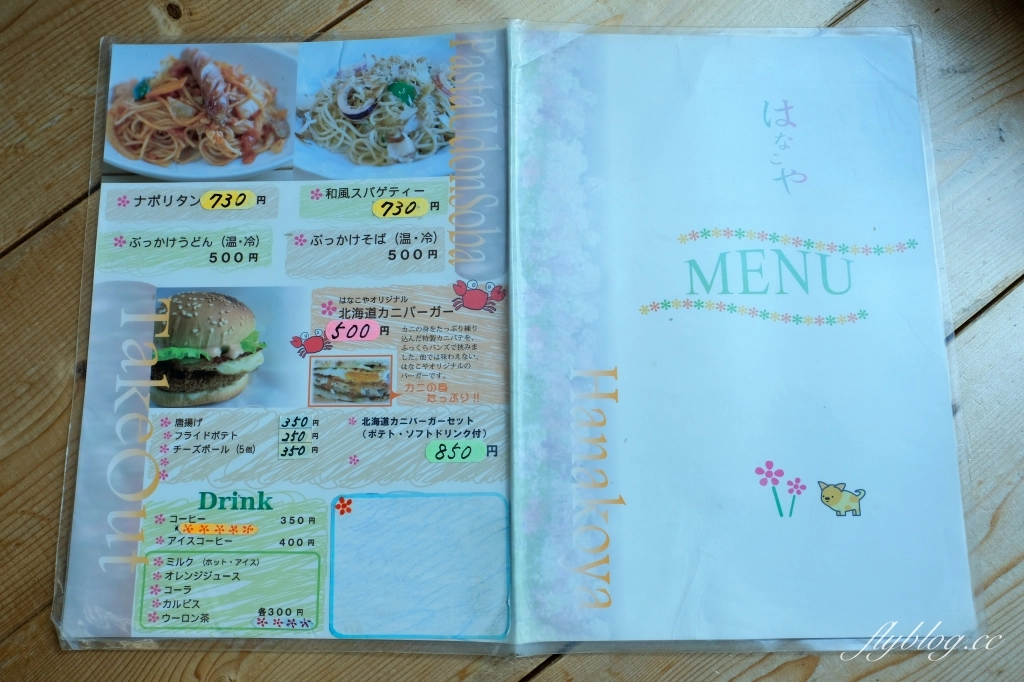 Pasta Udon Soba
ナポリタン 730 円
和風スパゲティー
730 円
ぶっかけうどん（温・冷）
500円
ぶっかけそば（温・冷）
500円
TakeOut
はなこやオリジナル
北海道カニバーガー
500 円
カニの身をたっぷり練り
込んだ特製カニパテを、
ふっくらバンズで挟みま
した。他では味わえない、
はなこやオリジナルの
バーガーです。
カニの身
たっぷり!!
唐揚げ 350 円
フライドポテト 250 円
チーズボール（5個） 350 円
北海道カニバーガーセット
（ポテト・ソフトドリンク付）
850 円
Drink
コーヒー 350 円
アイスコーヒー 400 円
ミルク （ホット・アイス）
オレンジジュース
コーラ
カルピス
ウーロン茶
各300 円
はなこや
MENU
Hanakoya
flyblog.cc